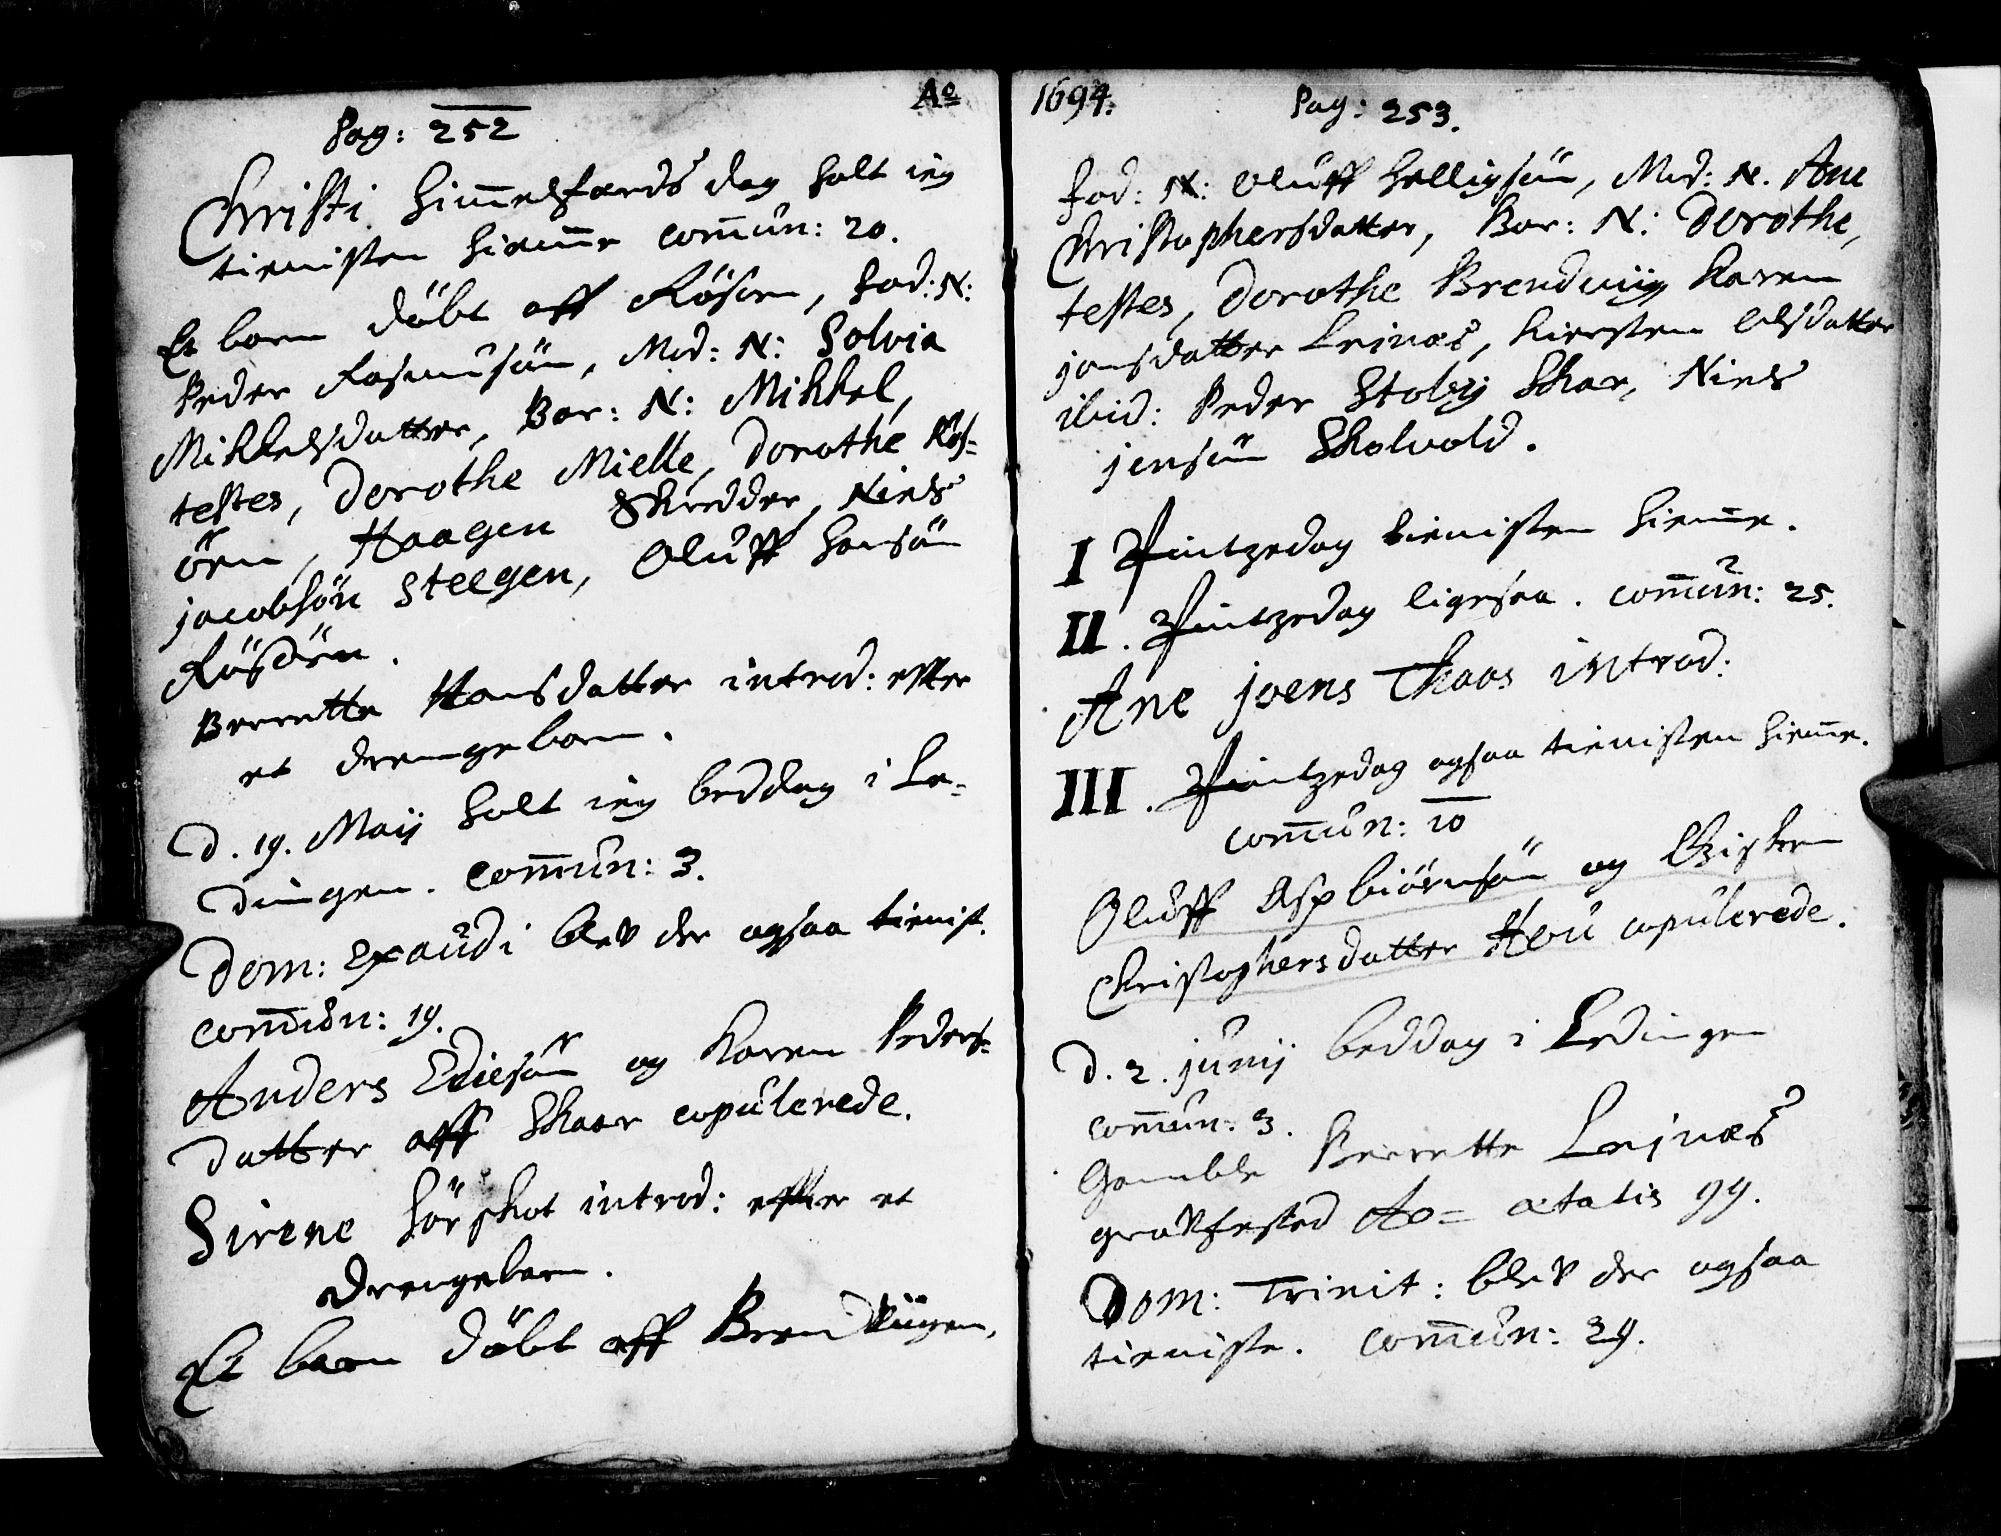 Pag: 252
Christi Himmelfærds dag holt ieg
tienisten hiemme comun: 20.
Et barn döbt aff Rösöen, fad: N:
Peder Rasmusön, Mod: N: Solvia
Mikkelsdatter, Bar: N: Mikkel,
testes, Dorothe Mielle, Dorothe Rös-
öen, Haagen Skredder, Niels
jacobsön Steegen, Oluff Hansön
Rösöen.
Berrette Hansdatter introd: effter
et drengebarn.
D. 19. Maij holt ieg beddag i Le-
dingen. Comun: 3.
Dom: Exaudi blev der ogsaa tienist.
comun: 19.
Anders Ediesön og Karen Peders-
datter aff Skaar copulerede.
Sirene introd: effter et
drengebarn.
Et barn döbt aff Brendviigen,
Ao 1694.
Pag: 253.
fad: N: Oluff Helligsön, Mod: N. Ane
Christophersdatter, Bar: N: Dorothe,
testes, Dorothe Brendwiig Karen
jonsdatter Leinæs, Kiersten Olsdatter
ibid: Peder Stoby Skar, Niels
jensön Skolvold.
I Pintzedag tienisten hiemme.
II. Pintzedag ligesaa. comun: 25.
Ane joens introd:
III. Pintzedag ogsaa tienisten hiemme.
comun: 10
Oluff Asbiörnsön og
Christophersdatter copulerede.
D. 2. junij beddag i Ledingen
comun: 3.
Gamble Berrette Lejnæs
gravfested Ao= ætatis 99.
Dom: Trinit: blev der ogsaa
tieniste. Comun: 29.